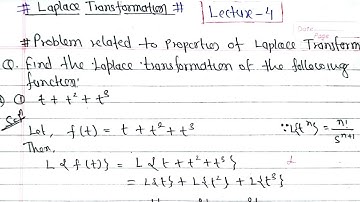 # Laplace Transformation # Lecture-4
Date
Page
# Problem related to properties of Laplace Transform
Q. Find the Laplace transformation of the following
function:
① t + t² + t³
Sol
Let, f(t) = t + t² + t³ ∵ L{tⁿ} = n!/sⁿ⁺¹
Then,
L{f(t)} = L{t + t² + t³}
= L{t} + L{t²} + L{t³}